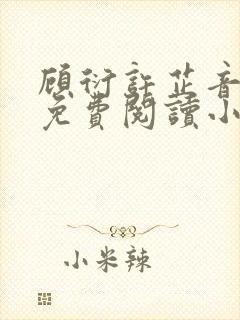 顾衍許芷音
免費閱讀小
小米辣